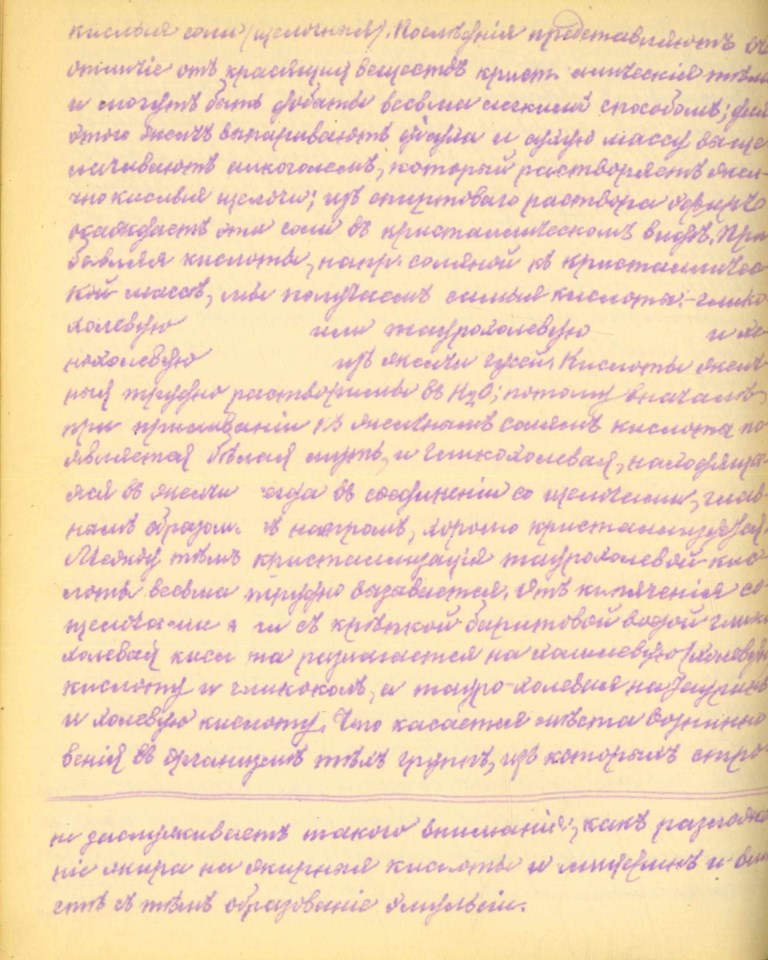 кислыя соли (щелочныя). Послѣднія представляютъ въ
отличіе отъ красящихъ веществъ крист аллическія тѣла
и могутъ быть добыты весьма легкимъ способомъ; для
этого желчь выпариваютъ досуха и сухую массу выще
лачиваютъ алкоголемъ, который растворяетъ желч-
но кислыя щелочи; изъ спиртоваго раствора эфиръ
осаждаетъ эти соли въ кристаллическомъ видѣ. При
бавляя кислоты, напр. соляной къ кристалличес-
кой массѣ, мы получаемъ самыя кислоты: глико
холевую или таурохолевую и хе
нохолевую изъ желчи гусей. Кислоты желч
ныя трудно растворимы въ H2O; потому вначалѣ
при приливаніи къ желчнымъ солямъ кислоты по
является бѣлая муть, и гликохолевая, находяща-
яся въ желчи въ соединеніи со щелочами, глав
нымъ образом. съ натромъ, хорошо кристаллизуется.
Между тѣмъ кристаллизація таурохолевой кис
лоты весьма трудно вызывается. Отъ кипяченія со
щелочами и ли съ крѣпкой баритовой водой глико
холевая кисл та разлагается на холалевую (холевую
кислоту и гликоколь, а тауро-холевая на тауринъ
и холевую кислоту. Что касается мѣста возникно
венія въ организмѣ тѣхъ группъ, изъ которыхъ стро
не заслуживаетъ такого вниманія, какъ разложе
ніе жира на жирныя кислоты и глицеринъ и вмѣ
стѣ съ тѣмъ образованіе эмульсіи.